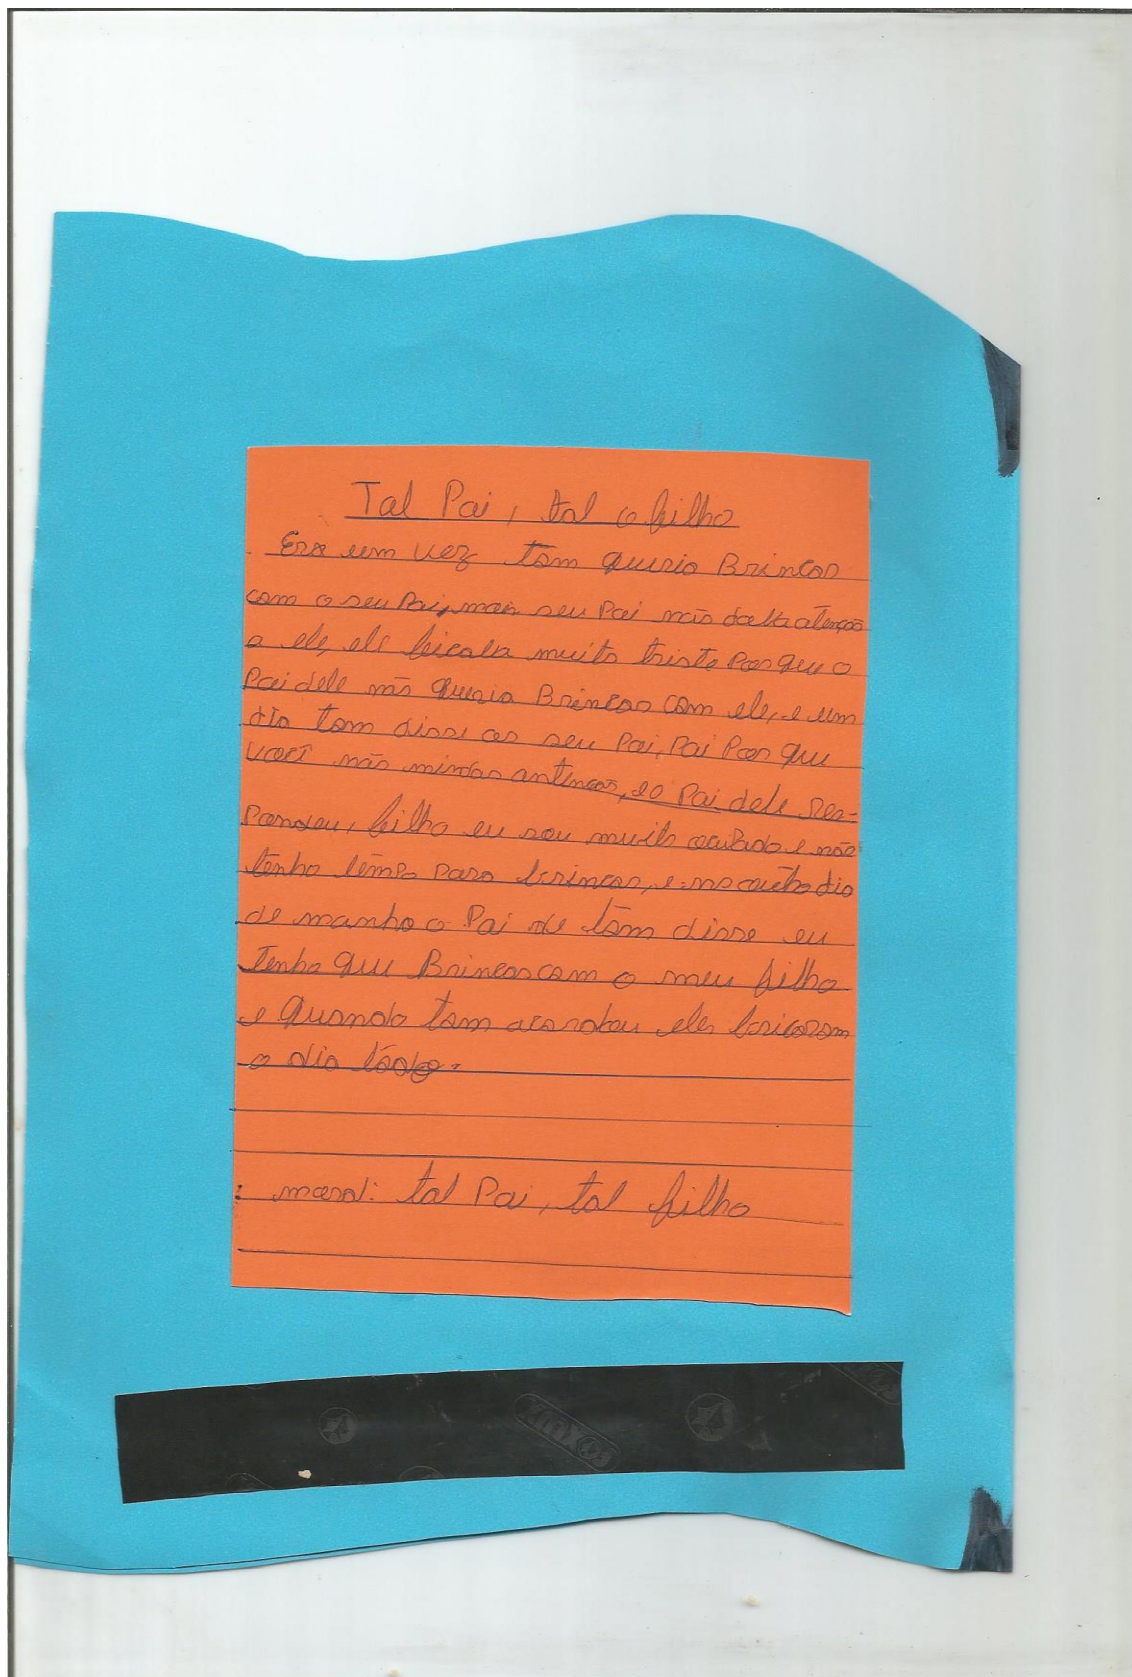 Tal Pai, tal o filho
Era um vez tom queria Brincar
com o seu Pai, mais seu Pai não dava atenção
a ele, ele ficava muito triste Por que o
Pai dele não queria Brincar com ele, e um
dia tom disse ao seu Pai, Pai Por que
você não mim das antenção, e o Pai dele res-
Pondeu, filho eu sou muito ocupado e não
tenho tempo para brincar, e no outro dia
de manha o Pai de tom disse eu
Tenho que Brincar com o meu filho
e Quando tom acordou eles bricaram
o dia todo.
: moral: tal Pai, tal filho